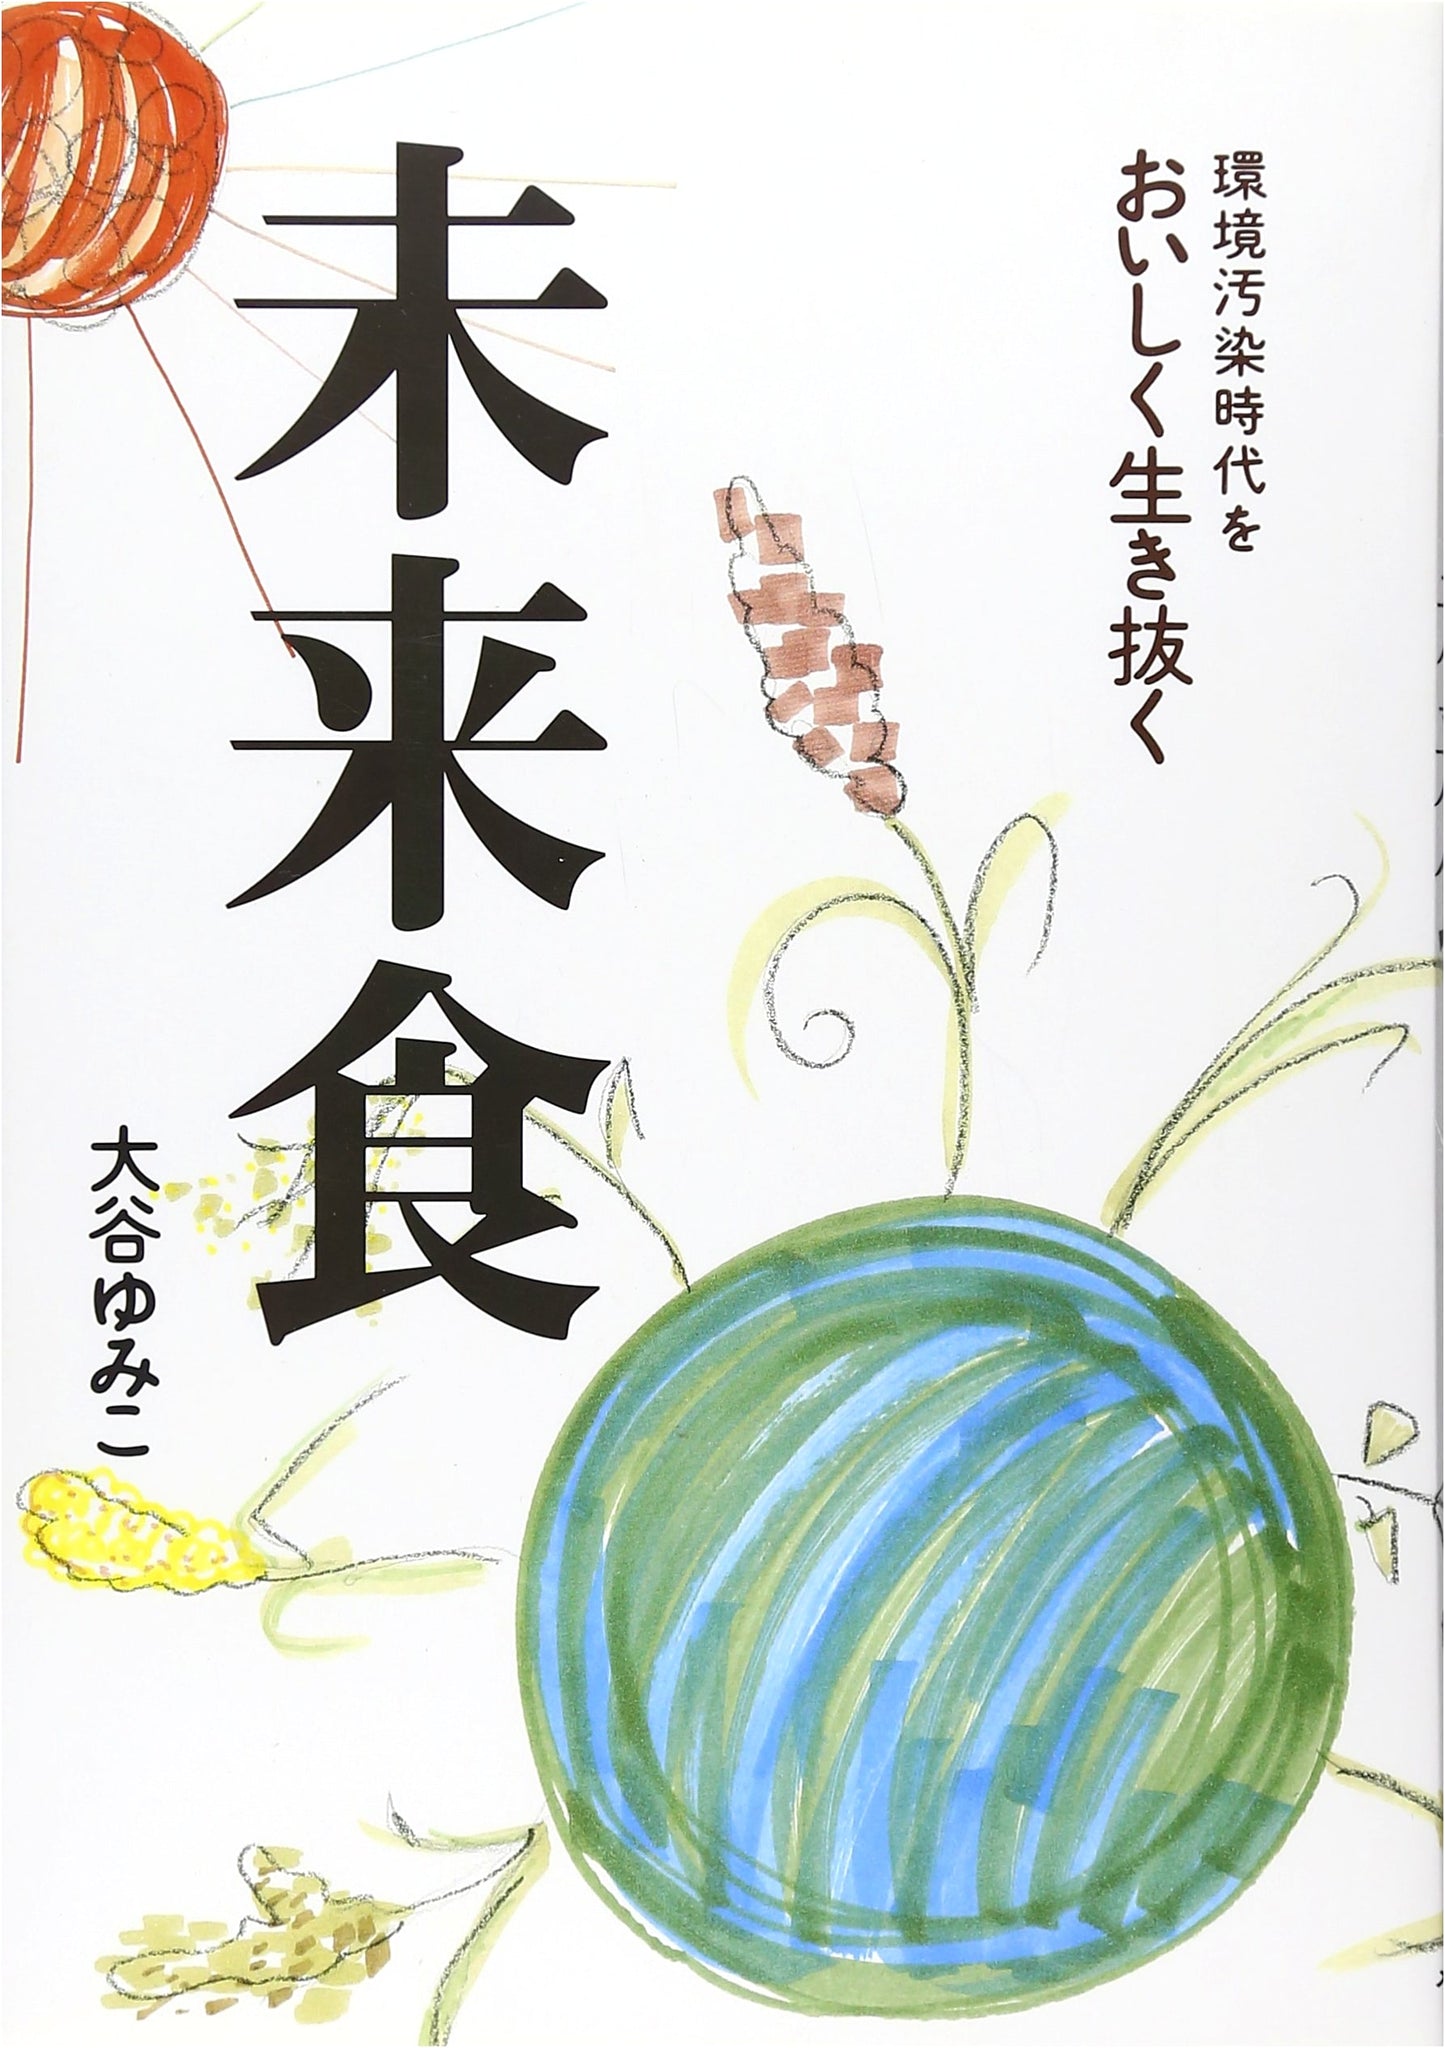 環境汚染時代を
おいしく生き抜く
未来食
大谷ゆみこ